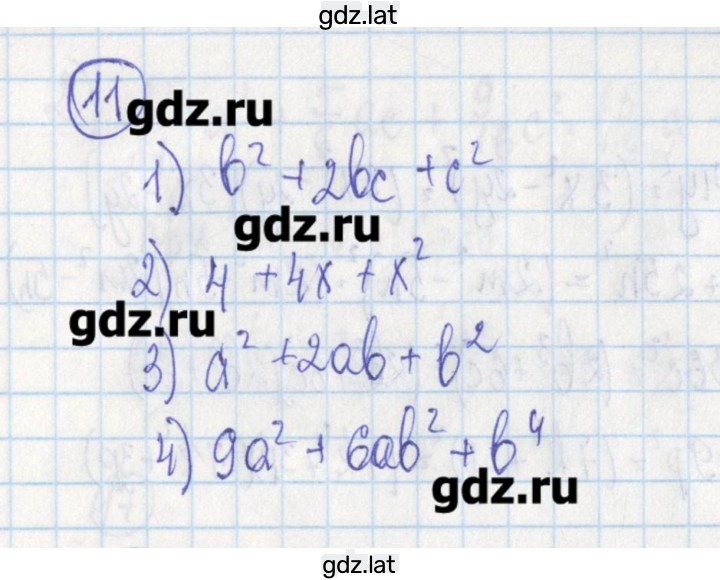 gdz.lat
11 gdz.ru
1) b² + 2bc + c²
gdz.ru
2) 4 + 4x + x²
gdz.ru
3) a² + 2ab + b²
4) 9a² + 6ab² + b⁴
gdz.ru
gdz.lat